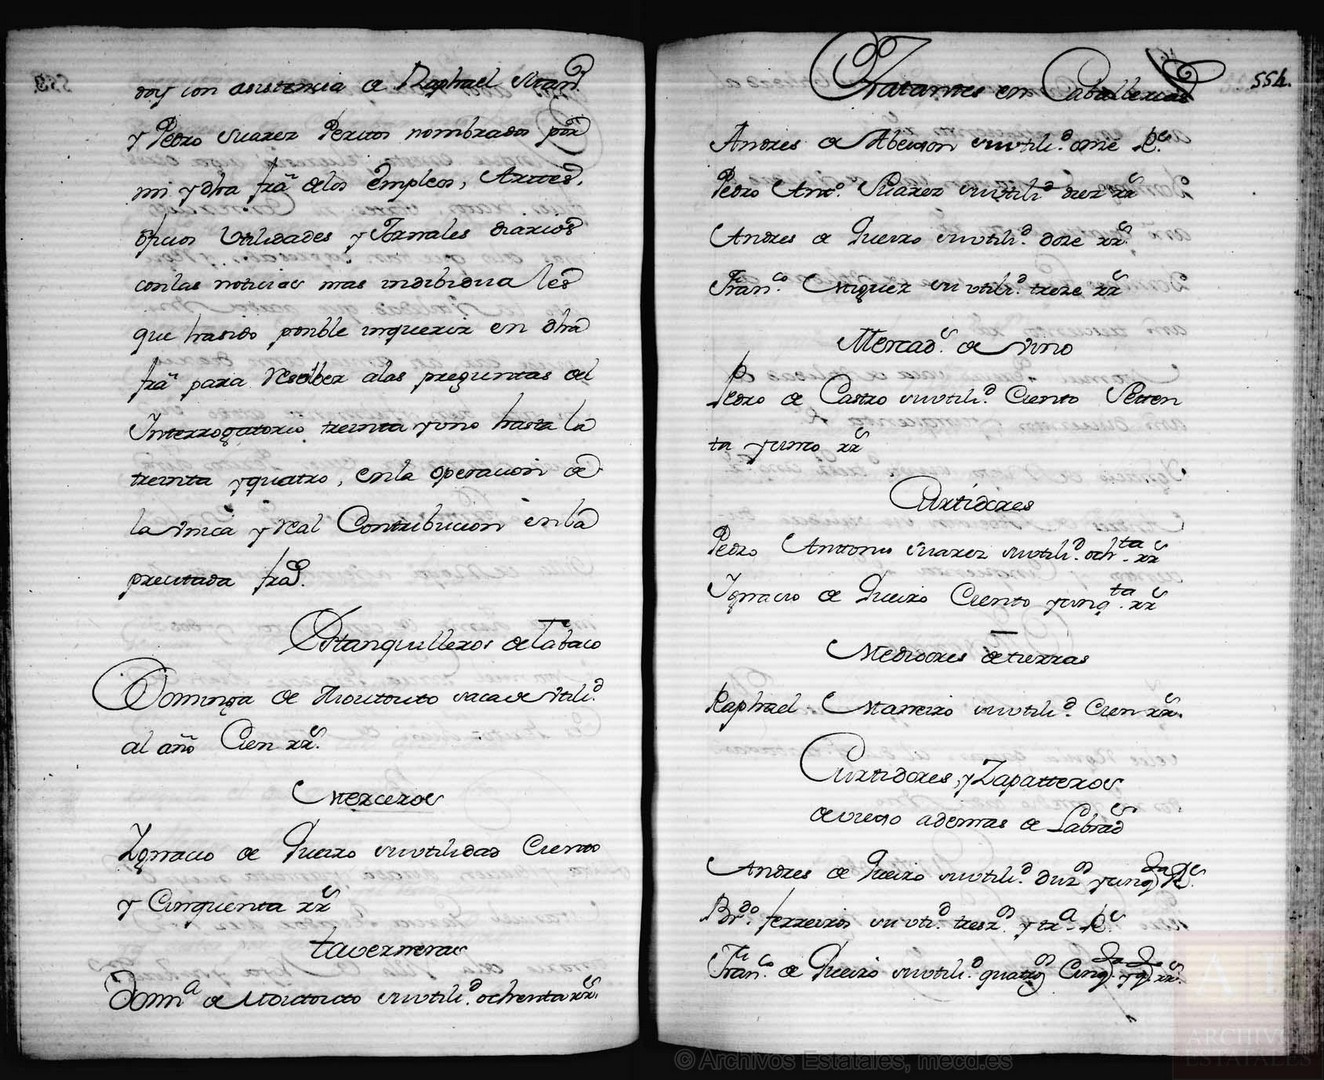 dos con asistencia de Raphael
y Pedro Suarez Peritos nombrados por
mi y dha fra de los empleos, Artes,
oficios Utilidades y Jornales diarios
con las noticias mas indibidua les
que ha sido posible inquerir en dha
fra para resolber a las preguntas del
Interrogatorio treinta y uno hasta la
treinta y quatro, en la operacion de
la unica y real Contribucion en la
precitada fra.
Estanquilleros de tabaco
Dominga de Moutouto saca de Utilid
al año Cien rrs.
Merceros
Ygnacio de Gueiro su utilidad Ciento
y Cinquenta rrs
taverneras
Domª de Moutouto su utilid. ochenta rrs.
554.
Tratantes en Caballerias
Andres de su utilid. onze Rs.
Pedro Antº Suarez su utilid diez rrs
Andres de Gueiro su utilid. doze rrs.
Franco. su utilid. treze rrs
Mercads. de vino
Pedro de Castro su utilid. Ciento Seten
ta y uno rrs
Curtidores
Pedro Antonio Suarez su utilid. ochta rrs
Ygnacio de Gueiro Ciento y cinqta. rrs
Medidores de tierras
Raphael su utilid. Cien rrs.
Curtidores, y Zapatteros
de viejo ademas de Labrads
Andres de Gueiro su utilid. y Rs.
Brdo. ferreiros su utid. Rs
Franco. de Gueiro su utilid. rrs.
© Archivos Estatales, mecd.es
ARCHIVOS
ESTATALES